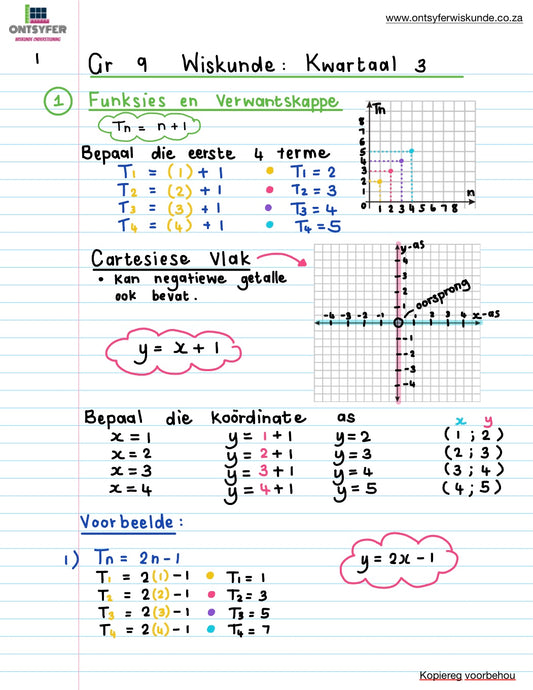 ONTSYFER
WISKUNDE ONDERSTEUNING
www.ontsyferwiskunde.co.za
1
Gr 9 Wiskunde: Kwartaal 3
1 Funksies en Verwantskappe
Tn = n + 1
Bepaal die eerste 4 terme
T1 = (1) + 1 T1 = 2
T2 = (2) + 1 T2 = 3
T3 = (3) + 1 T3 = 4
T4 = (4) + 1 T4 = 5
Tn
8
7
6
5
4
3
2
1
0 1 2 3 4 5 6 7 8 n
Cartesiese Vlak
• Kan negatiewe getalle
ook bevat.
y-as
4
3
2
1
oorsprong
-4 -3 -2 -1 1 2 3 4 x-as
-1
-2
-3
-4
y = x + 1
Bepaal die koördinate as
x y
x = 1 y = 1 + 1 y = 2 (1 ; 2)
x = 2 y = 2 + 1 y = 3 (2 ; 3)
x = 3 y = 3 + 1 y = 4 (3 ; 4)
x = 4 y = 4 + 1 y = 5 (4 ; 5)
Voorbeelde:
1) Tn = 2n - 1
y = 2x - 1
T1 = 2(1) - 1 T1 = 1
T2 = 2(2) - 1 T2 = 3
T3 = 2(3) - 1 T3 = 5
T4 = 2(4) - 1 T4 = 7
Kopiereg voorbehou